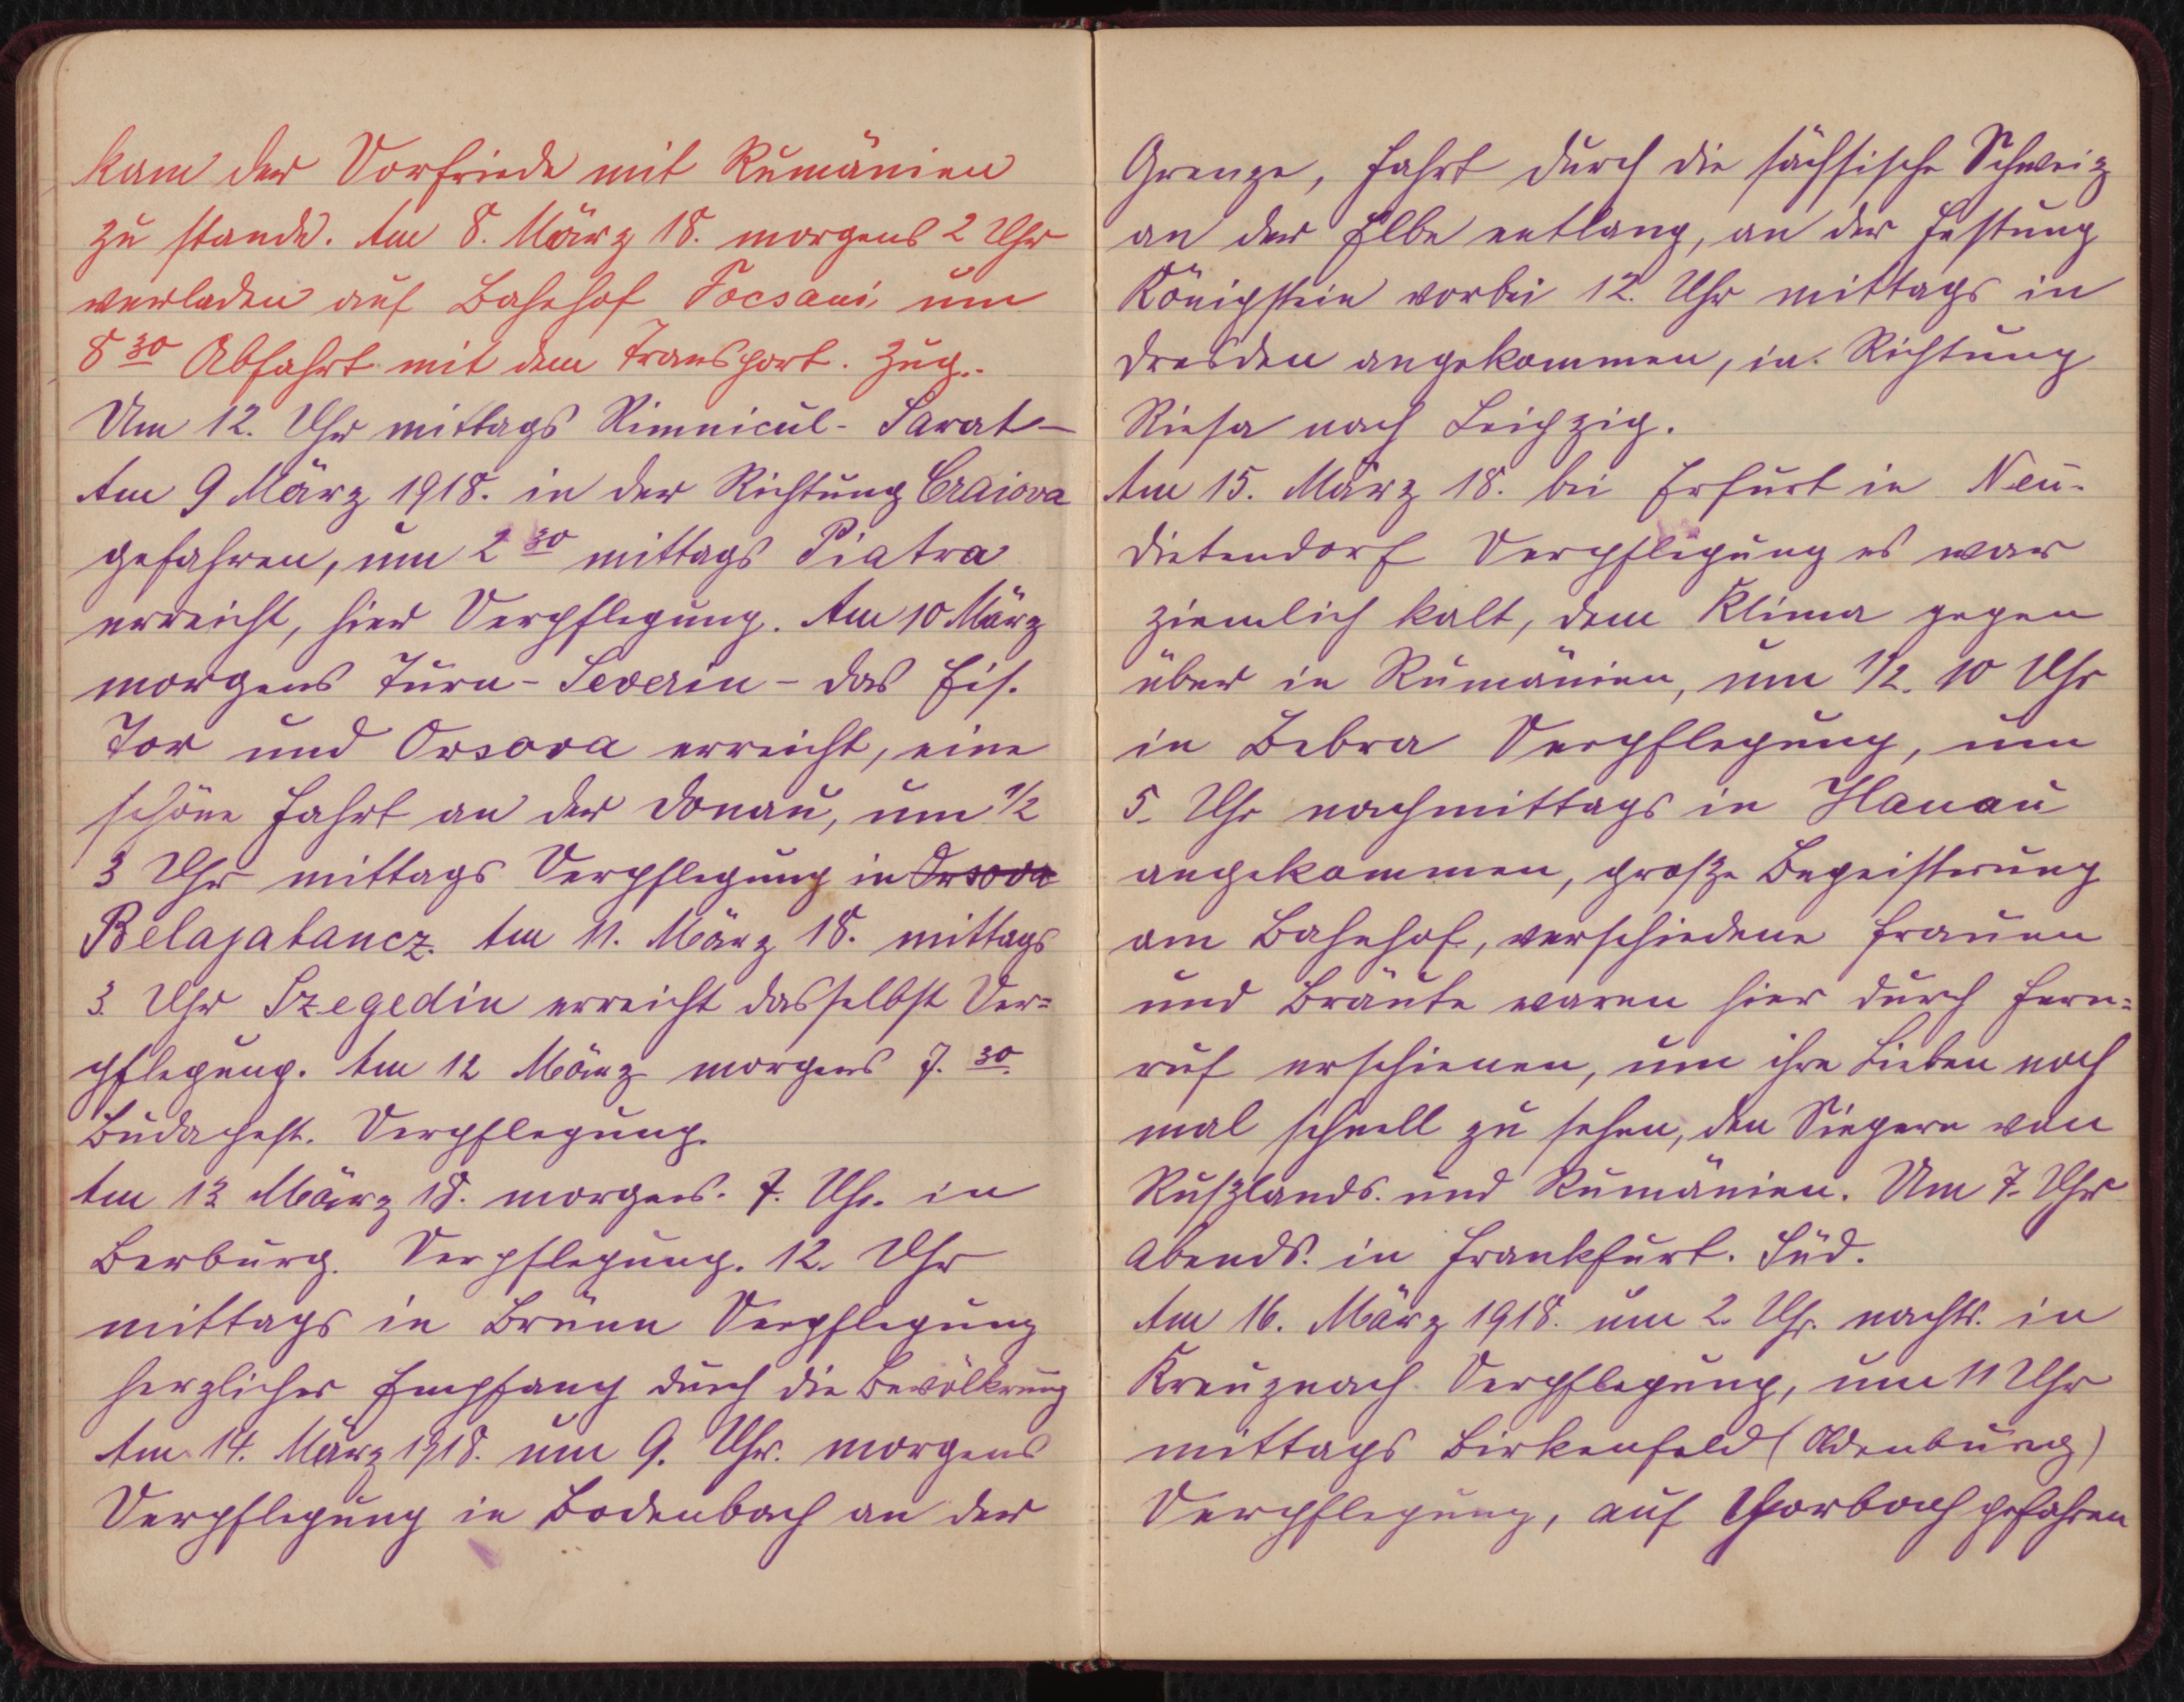 kam der Vorfriede mit Rumänien
zu stande. Am 8. März 18. morgens 2 Uhr
verladen auf Bahnhof Focsani, um
8 30 Abfahrt mit dem Transport. Zug.
Um 12. Uhr mittags Rimnicul-Sarat-
Am 9 März 1918. in der Richtung Craiova
gefahren, um 2 30 mittags Piatra
erreicht, hier Verpflegung. Am 10 März
morgens Turn-Severin - das Eis.
Tor und Orsova erreicht, eine
schöne Fahrt an der Donau, um 1/2
3 Uhr mittags Verpflegung in Orsova
Belajabancz. Am 11. März 18. mittags
3. Uhr Szegedin erreicht dasselbst Ver=
pflegung. Am 12 März morgens 7. 30.
Budapest. Verpflegung.
Am 13 März 18. morgens. 7. Uhr. in
Berburg. Verpflegung. 12. Uhr
mittags in Brünn Verpflegung
herzlicher Empfang durch die Bevölkrung
Am 14. März 1918. um 9. Uhr. morgens
Verpflegung in Bodenbach an der
Grenze, Fahrt durch die sächsische Schweiz
an der Elbe entlang, an der Festung
Königstein vorbei 12. Uhr mittags in
Dresden angekommen, in. Richtung
Riesa nach Leipzig.
Am 15. März 18. bei Erfurt in Neu-
dietendorf Verpflegung es war
ziemlich kalt, dem Klima gegen
über in Rumänien, um 1/2. 10 Uhr
in Bebra Verpflegung, um
5. Uhr nachmittags in Hanau
angekommen, große Begeisterung
am Bahnhof, verschiedene Frauen
und Bräute waren hier durch Fern=
ruf erschienen, um ihre Lieben noch
mal schnell zu sehen, den Siegern von
Rußlands. und Rumänien. Um 7. Uhr
Abends. in Frankfurt. Süd.
Am 16. März 1918. um 2. Uhr. nachts. in
Kreuznach Verpflegung, um 11 Uhr
mittags Birkenfeld (Oldenburg)
Verpflegung, auf Forbach gefahren